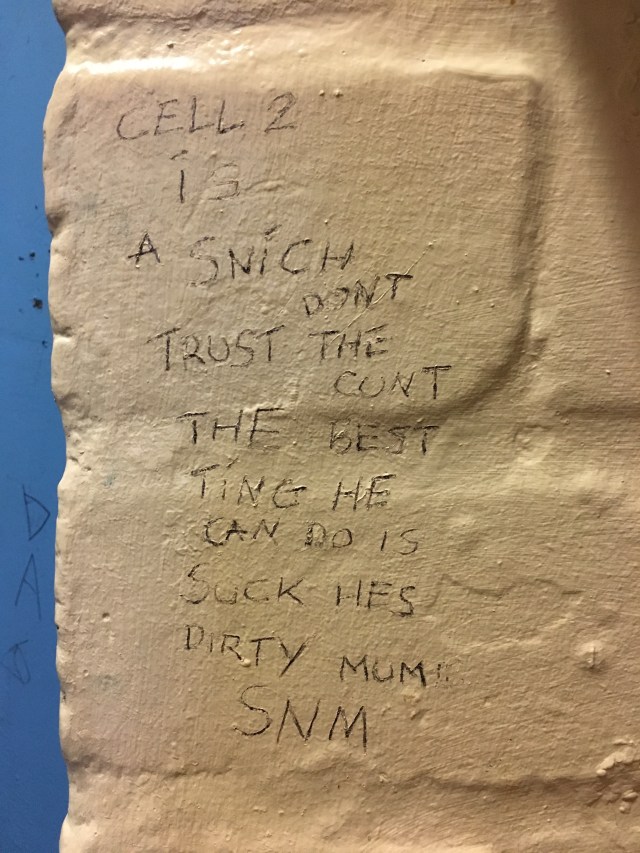 CELL 2
is
A SNiCH
DONT
TRUST THE
CUNT
THE BEST
TiNG HE
CAN DO IS
SUCK HES
DIRTY MUM!!
SNM
D
A
J